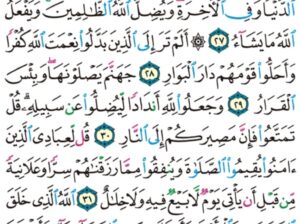 الدُّنْيَا وَفِي الْآخِرَةِ وَيُضِلُّ اللَّهُ الظَّالِمِينَ وَيَفْعَلُ
اللَّهُ مَا يَشَاءُ ٢٧ ۞ أَلَمْ تَرَ إِلَى الَّذِينَ بَدَّلُوا نِعْمَتَ اللَّهِ كُفْرًا
وَأَحَلُّوا قَوْمَهُمْ دَارَ الْبَوَارِ ٢٨ جَهَنَّمَ يَصْلَوْنَهَا وَبِئْسَ
الْقَرَارُ ٢٩ وَجَعَلُوا لِلَّهِ أَندَادًا لِّيُضِلُّوا عَن سَبِيلِهِ قُلْ
تَمَتَّعُوا فَإِنَّ مَصِيرَكُمْ إِلَى النَّارِ ٣٠ قُل لِّعِبَادِيَ الَّذِينَ
ءَامَنُوا يُقِيمُوا الصَّلَوٰةَ وَيُنفِقُوا مِمَّا رَزَقْنَٰهُمْ سِرًّا وَعَلَانِيَةً
مِّن قَبْلِ أَن يَأْتِيَ يَوْمٌ لَّا بَيْعٌ فِيهِ وَلَا خِلَٰلٌ ٣١ اللَّهُ الَّذِي خَلَقَ